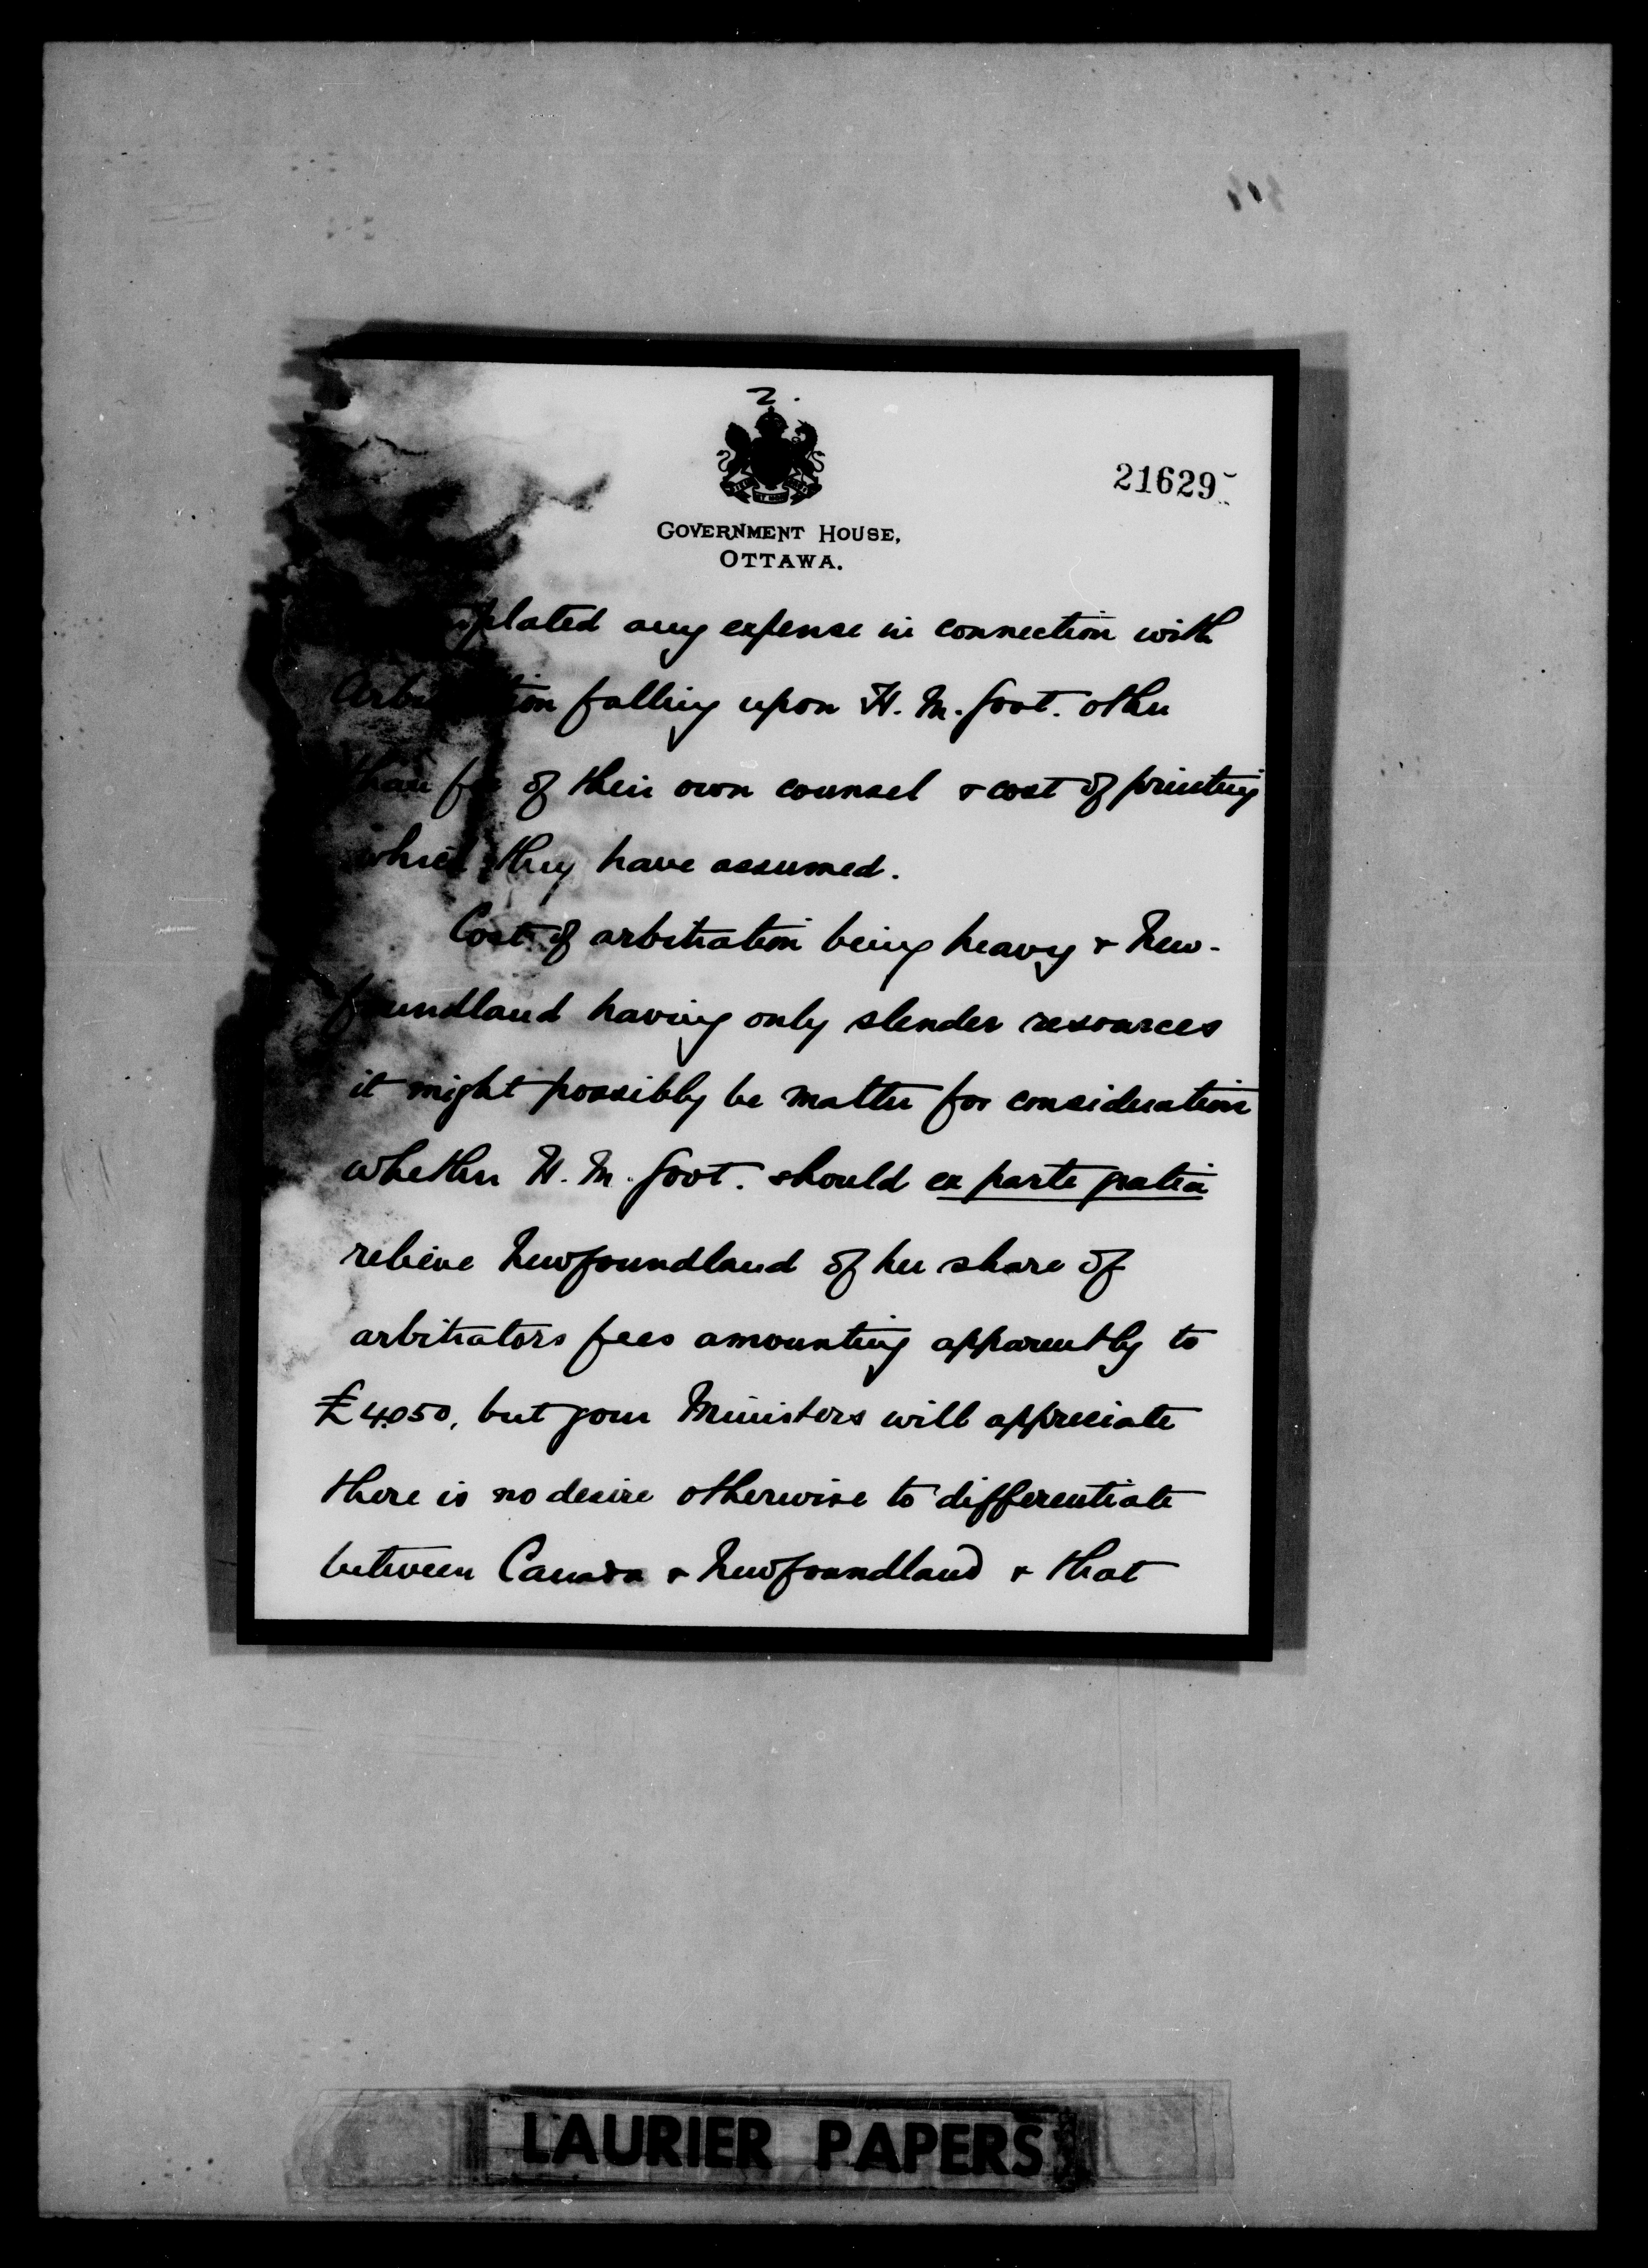 2.
21629
GOVERNMENT HOUSE,
OTTAWA.
plated any expense in connection with
falling upon H. M. Govt. other
than of their own counsel & cost of printing
which they have assumed.
Cost of arbitration being heavy & New-
foundland having only slender resources
it might possibly be matter for consideration
whether H. M. Govt. should ex parte gratia
relieve Newfoundland of her share of
arbitrators fees amounting apparently to
£4050, but your Ministers will appreciate
there is no desire otherwise to differentiate
between Canada & Newfoundland & that
LAURIER PAPERS